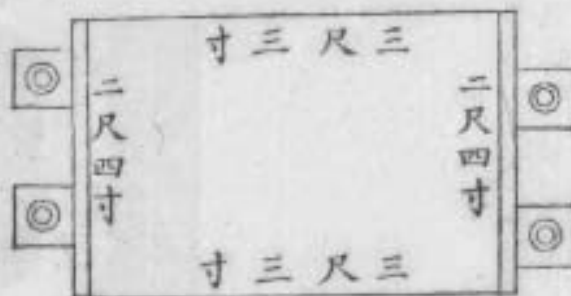 三尺三寸
二尺四寸
二尺四寸
三尺三寸